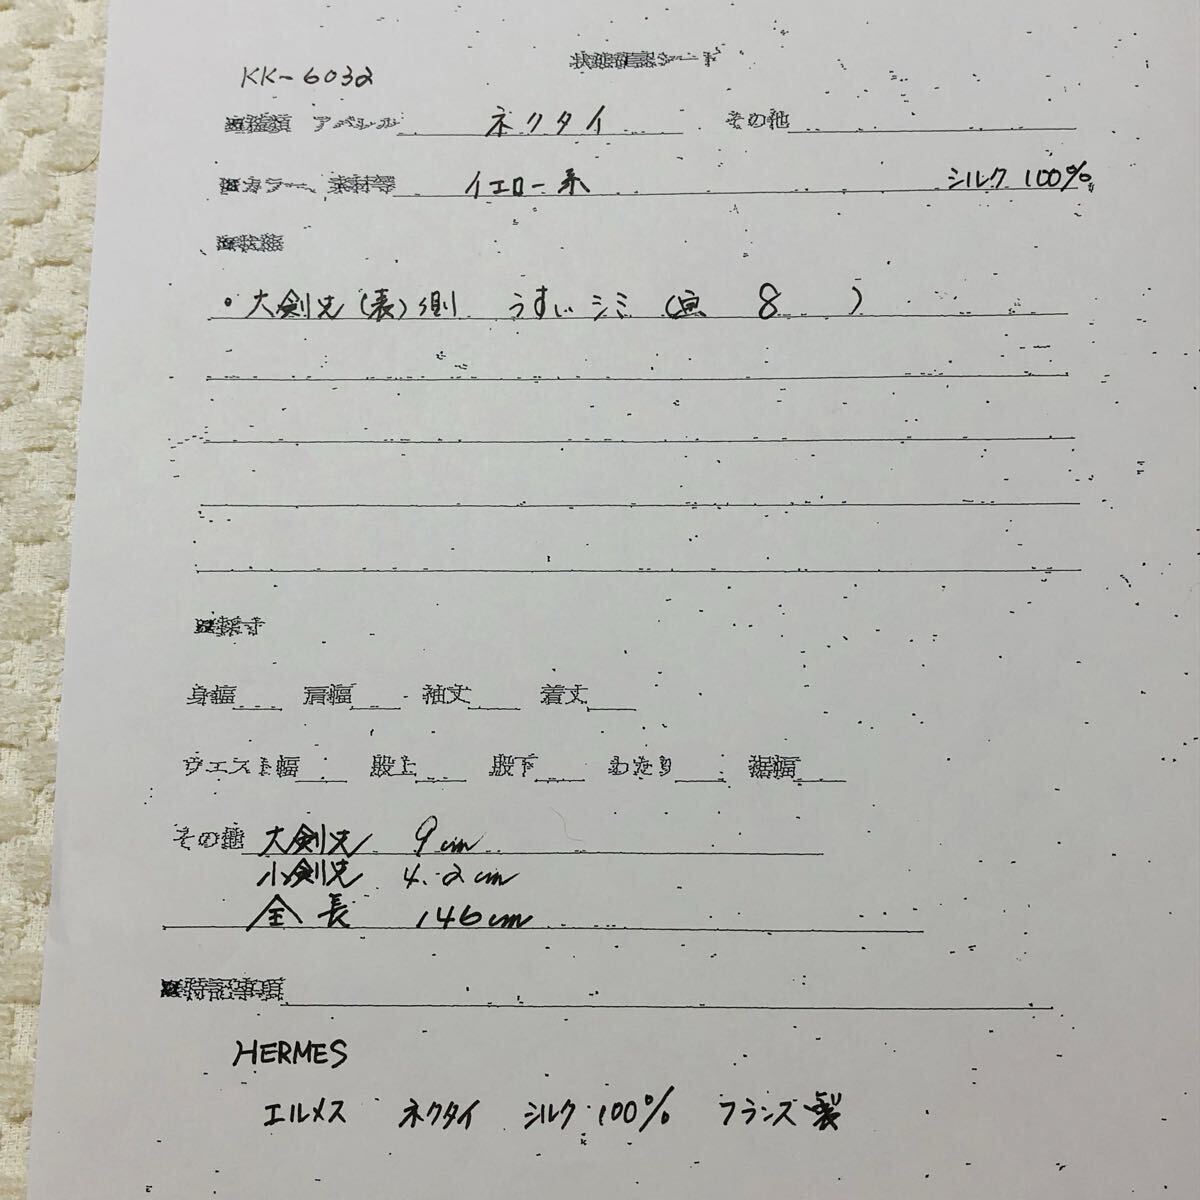 状態確認シート
KK-6032
■種類 アパレル ネクタイ その他
■カラー、素材等 イエロー系 シルク 100%
■状態
・大剣先(表)側 うすいシミ (画 8 )
■採寸
身幅 肩幅 袖丈 着丈
ウエスト幅 股上 股下 わたり 裾幅
その他 大剣先 9cm
小剣先 4.2cm
全長 146cm
■特記事項
HERMES
エルメス ネクタイ シルク100% フランス製